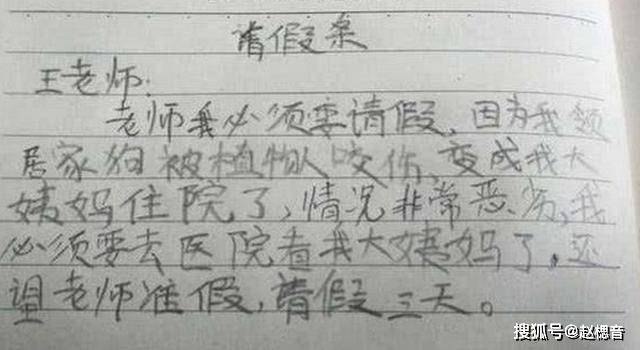 请假条
王老师:
老师我必须要请假,因为我领
居家狗被植物人咬伤,变成我大
姨妈住院了,情况非常恶劣,我
必须要去医院看我大姨妈了,还
望老师准假,请假三天。
搜狐号@赵楒音